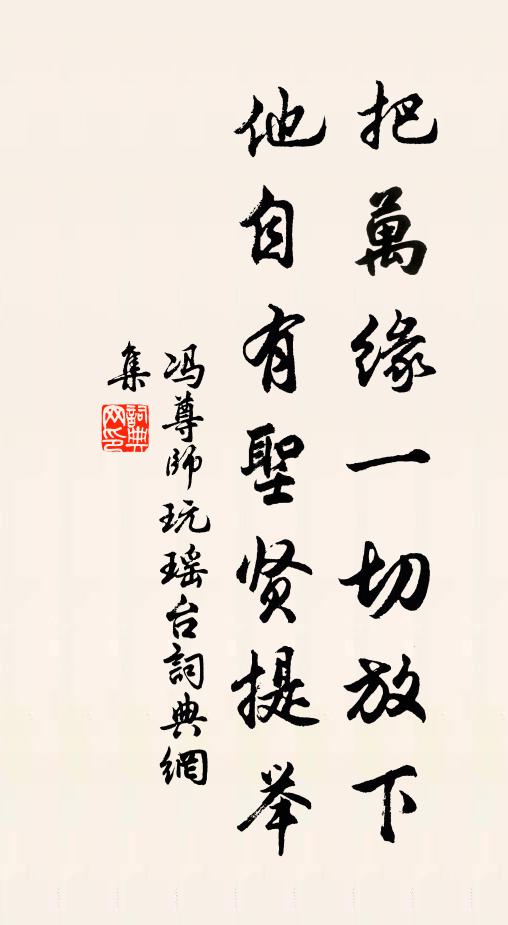 把萬緣一切放下
他自有聖贤提举
冯尊師玩瑶台詞典網
集
詞典网印